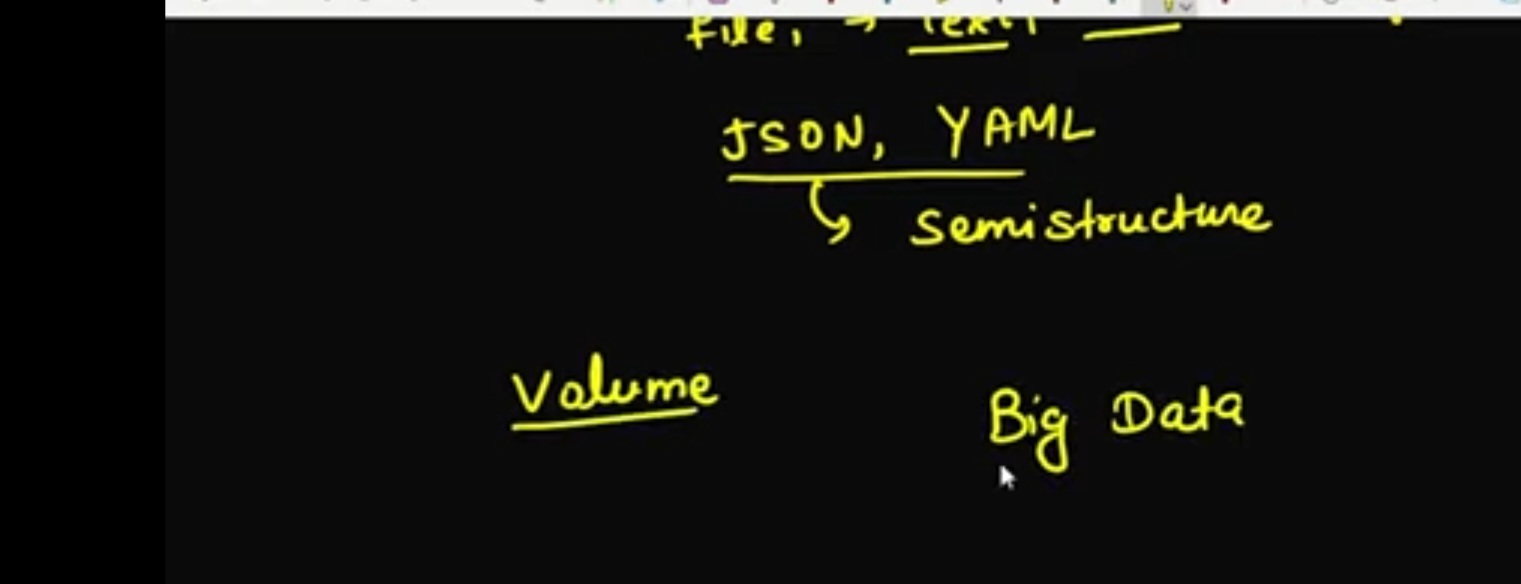 File, →
JSON, YAML
↳ Semistructure
Volume Big Data